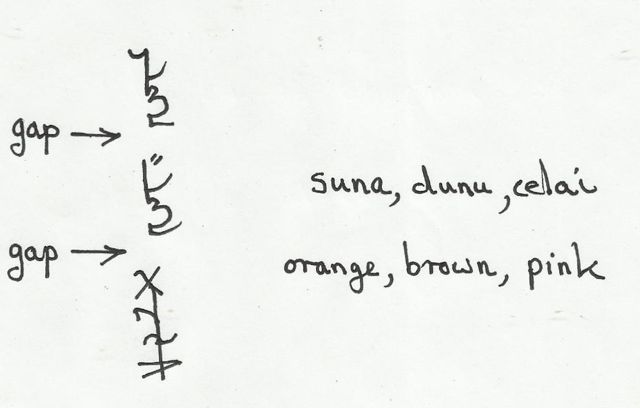 gap →
gap →
suna, dunu, celai
orange, brown, pink